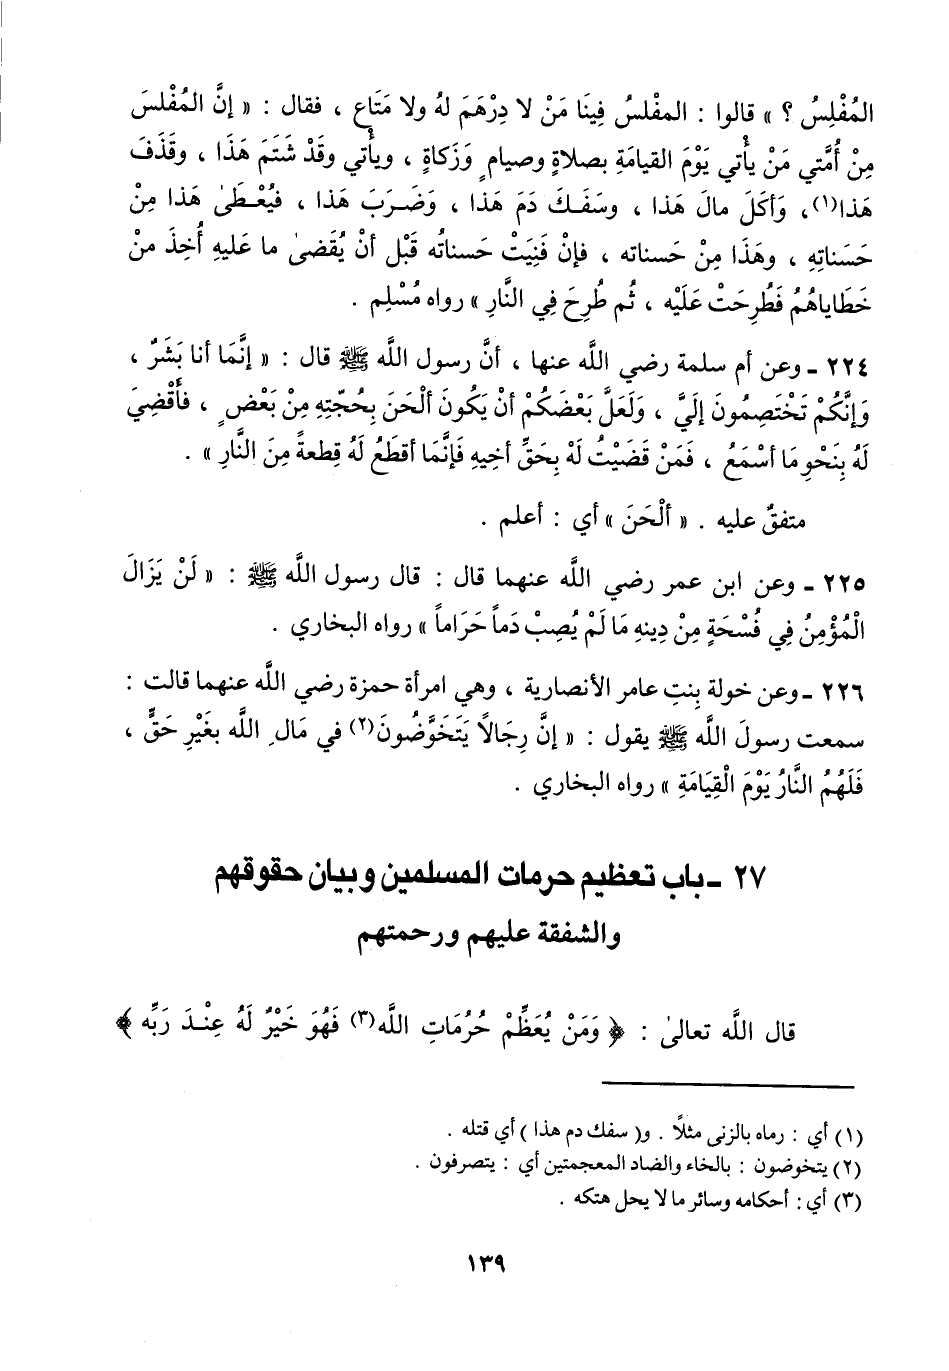 المُفْلِسُ ؟ » قالوا : المفْلسُ فِينَا مَنْ لا دِرْهَمَ لهُ ولا مَتَاع ، فقال : « إنَّ المُفْلسَ
مِنْ أُمَّتي مَنْ يأْتي يَوْمَ القيامَةِ بصلاةٍ وصيامٍ وَزَكاةٍ ، ويأْتي وقَدْ شَتَمَ هَذَا ، وقَذَفَ
هَذا(١)، وَأكَلَ مالَ هَذا ، وسَفَـكَ دَمَ هَذا ، وَضَـرَبَ هَذا ، فيُعْـطَىٰ هَذا مِنْ
حَسَناتِهِ ، وهَذَا مِنْ حَسناته ، فإنْ فَنِيَتْ حَسناتُه قَبْل أنْ يُقْضىٰ ما عَليهِ أُخِذَ منْ
خَطَاياهُمْ فَطُرِحَتْ عَلَيْه ، ثُم طُرِحَ فِي النَّارِ » رواه مُسْلِم .
٢٢٤ ـ وعن أم سلمة رضي اللَّه عنها ، أنَّ رسول اللَّه ﷺ قال : « إنَّمَا أنا بَشَرٌ ،
وَإنَّكُمْ تَخْتَصِمُونَ إلَيَّ ، وَلَعَلَّ بَعْضَكُمْ أنْ يَكُونَ ألْحَنَ بِحُجّتِهِ مِنْ بَعْضٍ ، فأَقْضِيَ
لَهُ بِنَحْوِ مَا أسْمَعُ ، فَمَنْ قَضَيْتُ لَهْ بِحَقِّ أخِيهِ فَإنَّمَا أقطَعُ لَهُ قِطعةً مِنَ النَّارِ » .
متفقٌ عليه . « ألْحَنَ » أي : أعلم .
٢٢٥ ـ وعن ابن عمر رضي اللَّه عنهما قال : قال رسول اللَّه ﷺ : « لَنْ يَزَالَ
الْمُؤْمِنُ فِي فُسْحَةٍ مِنْ دِينهِ مَا لَمْ يُصِبْ دَماً حَرَاماً » رواه البخاري .
٢٢٦ ـ وعن خولة بِنتِ عامر الأنصارية ، وهي امرأة حمزة رضي اللَّه عنهما قالت :
سمعت رسولَ اللَّه ﷺ يقول : « إنَّ رِجَالاً يَتَخَوَّضُونَ(٢) في مَالِ اللَّه بغَيْرِ حَقٍّ ،
فَلَهُمُ النَّارُ يَوْمَ الْقِيَامَةِ » رواه البخاري .
٢٧ ـ باب تعظيم حرمات المسلمين وبيان حقوقهم
والشفقة عليهم ورحمتهم
قال اللَّه تعالىٰ : ﴿ وَمَنْ يُعَظِّمْ حُرُمَاتِ اللَّه(٣) فَهُوَ خَيْرٌ لَهُ عِنْـدَ رَبِّه ﴾
(١) أي : رماه بالزنى مثلًا . و( سفك دم هذا ) أي قتله .
(٢) يتخوضون : بالخاء والضاد المعجمتين أي : يتصرفون .
(٣) أي : أحكامه وسائر ما لا يحل هتكه .
١٣٩